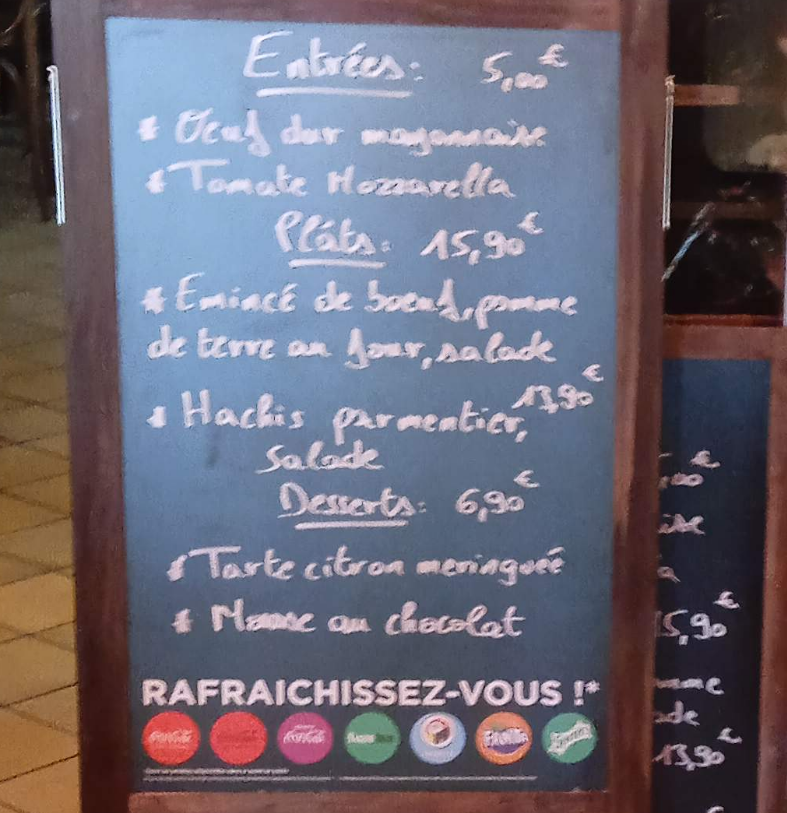 Entrées: 5,00€
* Oeuf dur mayonnaise
* Tomate Mozzarella
Plats: 15,90€
* Emincé de boeuf, pomme
de terre au four, salade
* Hachis parmentier, 13,90€
Salade
Desserts: 6,90€
* Tarte citron meringuée
* Mousse au chocolat
RAFRAICHISSEZ-VOUS !*
,00€
ise
a
15,90€
mme
ade
13,90€
€